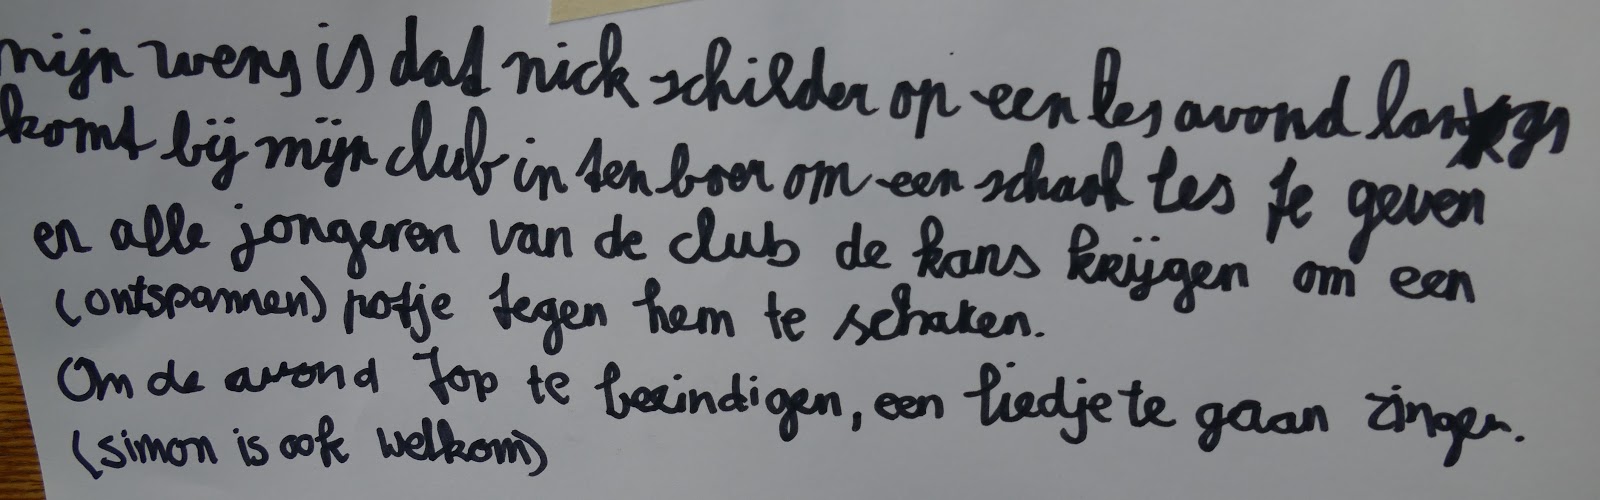 mijn wens is dat nick schilder op een les avond langs
komt bij mijn club in ten boer om een schaak les te geven
en alle jongeren van de club de kans krijgen om een
(ontspannen) potje tegen hem te schaken.
Om de avond top te beeindigen, een liedje te gaan zingen.
(simon is ook welkom)